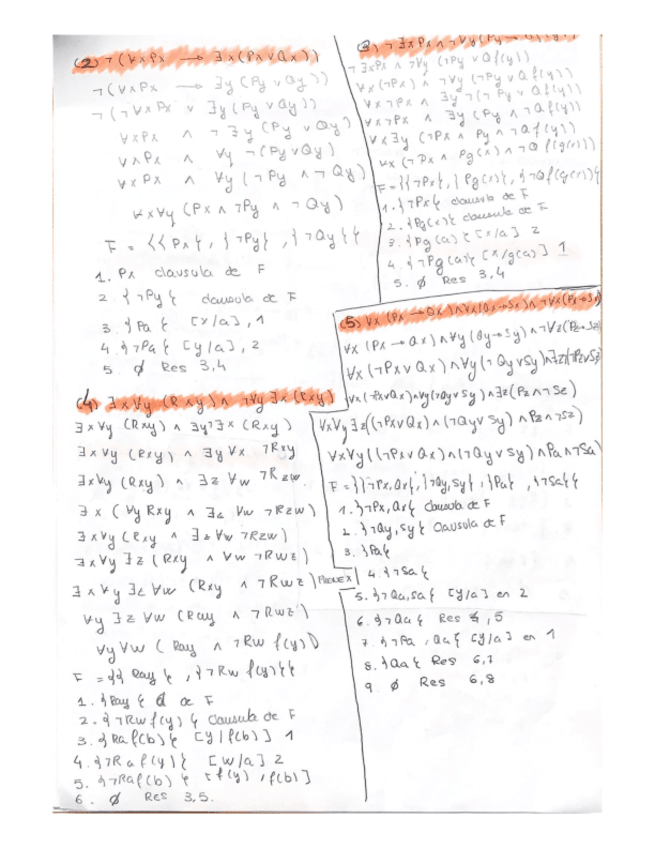 (2) ¬(∀xPx → ∃x(Px∨Qx))
¬(∀xPx → ∃y(Py∨Qy))
¬(¬∀xPx ∨ ∃y(Py∨Qy))
∀xPx ∧ ¬∃y(Py∨Qy)
∀xPx ∧ ∀y ¬(Py∨Qy)
∀xPx ∧ ∀y(¬Py ∧ ¬Qy)
∀x∀y (Px ∧ ¬Py ∧ ¬Qy)
F = {{Px}, {¬Py}, {¬Qy}}
1. Px clausula de F
2. {¬Py} clausula de F
3. {Pa} [x/a], 1
4. {¬Pa} [y/a], 2
5. ∅ Res 3,4
¬∃xPx ∧ ¬∀y (¬Py ∨ Qf(y))
∀x(¬Px) ∧ ¬∀y (¬Py ∨ Qf(y))
∀x¬Px ∧ ∃y ¬(¬Py ∨ Qf(y))
∀x¬Px ∧ ∃y (Py ∧ ¬Qf(y))
∀x∃y (¬Px ∧ Py ∧ ¬Qf(y))
∀x (¬Px ∧ Pg(x) ∧ ¬Qf(g(x)))
F = {{¬Px}, {Pg(x)}, {¬Qf(g(x))}}
1. {¬Px} clausula de F
2. {Pg(x)} clausula de F
3. {Pg(a)} [x/a] 2
4. {¬Pg(a)} [x/g(a)] 1
5. ∅ Res 3,4
(4) ∃x∀y (Rxy) ∧ ¬∀y∃x (Rxy)
∃x∀y (Rxy) ∧ ∃y¬∃x (Rxy)
∃x∀y (Rxy) ∧ ∃y∀x ¬Rxy
∃x∀y (Rxy) ∧ ∃z ∀w ¬Rzw
∃x (∀y Rxy ∧ ∃z ∀w ¬Rzw)
∃x∀y (Rxy ∧ ∃z ∀w ¬Rzw)
∃x∀y ∃z (Rxy ∧ ∀w ¬Rwz)
∃x∀y ∃z ∀w (Rxy ∧ ¬Rwz) PRENEX
∀y ∃z ∀w (Ray ∧ ¬Rwz)
∀y∀w (Ray ∧ ¬Rw f(y))
F = {{Ray}, {¬Rw f(y)}}
1. {Ray} de F
2. {¬Rw f(y)} clausula de F
3. {Raf(b)} [y/f(b)] 1
4. {¬Raf(y)} [w/a] 2
5. {¬Raf(b)} [f(y)/f(b)]
6. ∅ Res 3,5.
(5) ∀x (Px → Qx) ∧ ∀x(Qx → Sx) ∧ ¬∀x(Px→Sx)
∀x (Px → Qx) ∧ ∀y (Qy→Sy) ∧ ¬∀z(Pz→Sz)
∀x (¬Px∨Qx) ∧ ∀y(¬Qy∨Sy) ∧ ∃z¬(¬Pz∨Sz)
∀x (¬Px∨Qx) ∧ ∀y(¬Qy∨Sy) ∧ ∃z(Pz∧¬Sz)
∀x∀y∃z((¬Px∨Qx) ∧ (¬Qy∨Sy) ∧ Pz∧¬Sz)
∀x∀y((¬Px∨Qx)∧(¬Qy∨Sy)∧Pa∧¬Sa)
F = {{¬Px,Qx}, {¬Qy,Sy}, {Pa}, {¬Sa}}
1. {¬Px,Qx} Clausula de F
2. {¬Qy,Sy} Clausula de F
3. {Pa}
4. {¬Sa}
5. {¬Qa,Sa} [y/a] en 2
6. {¬Qa} Res 4,5
7. {¬Pa, Qa} [y/a] en 1
8. {Qa} Res 6,7
9. ∅ Res 6,8